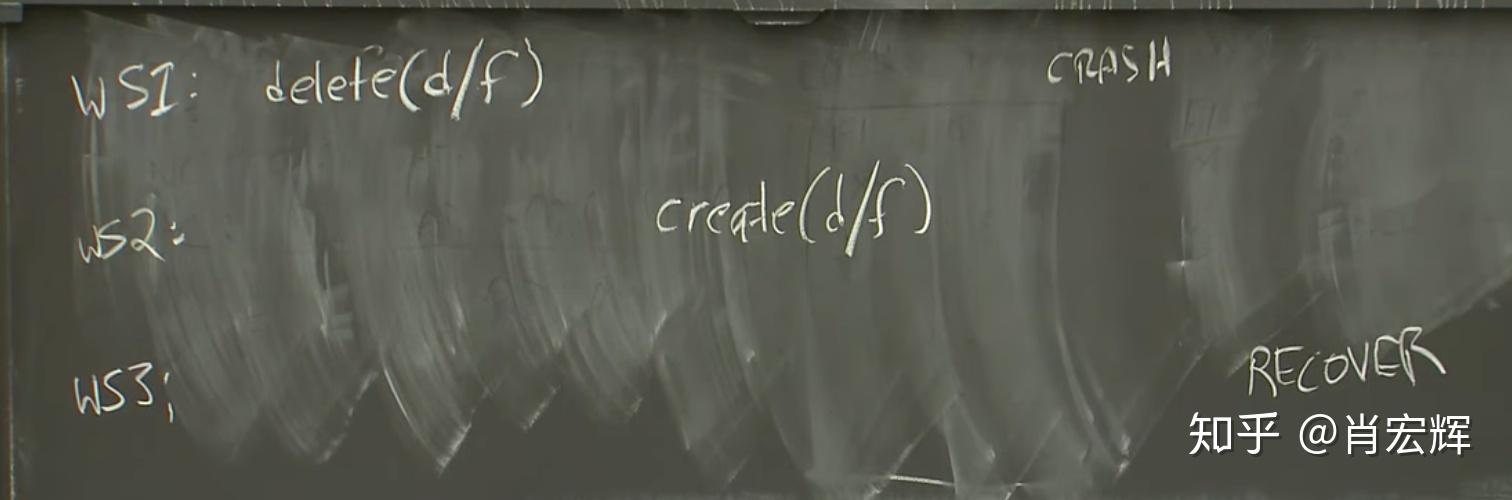 WS1: delete(d/f) CRASH
WS2: create(d/f)
WS3; RECOVER
知乎 @肖宏辉